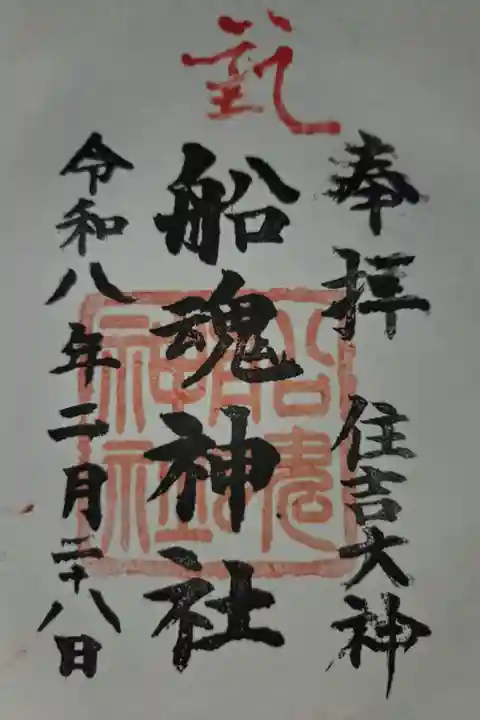 奉拝 住吉大神
船魂神社
令和八年二月二十八日